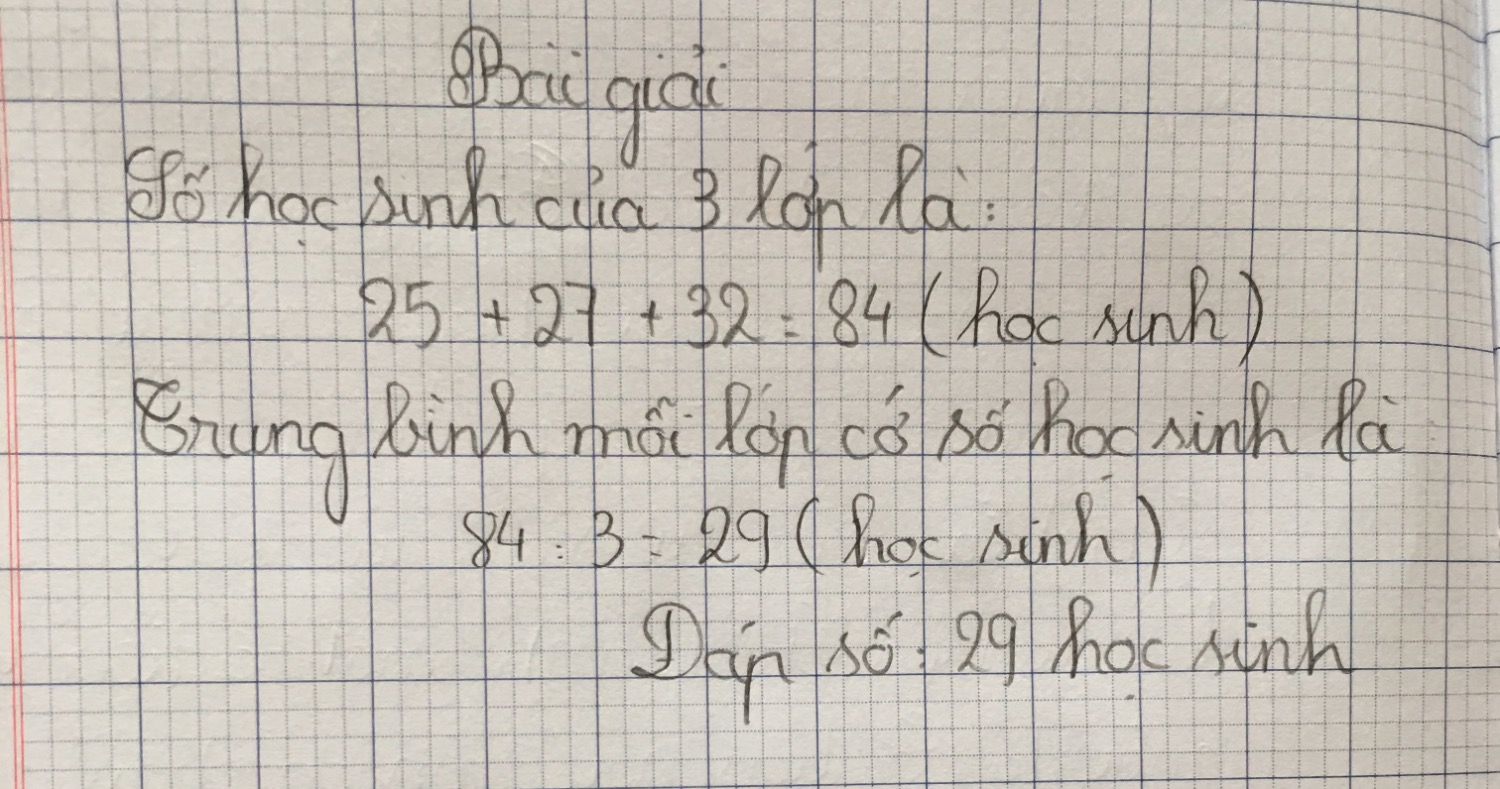 Bài giải
Số học sinh của 3 lớp là:
25 + 27 + 32 = 84 (học sinh)
Trung bình mỗi lớp có số học sinh là
84 : 3 = 29 (học sinh)
Đáp số: 29 học sinh